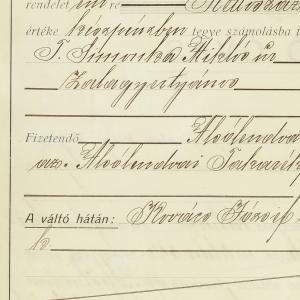 rendelet
értéke készpénzben tegye számolásba
T. Simonka Miklós úr
Zalagyertyános
Fizetendő Alsólendva
az Alsólendvai Takarék
A váltó hátán: Kovács József